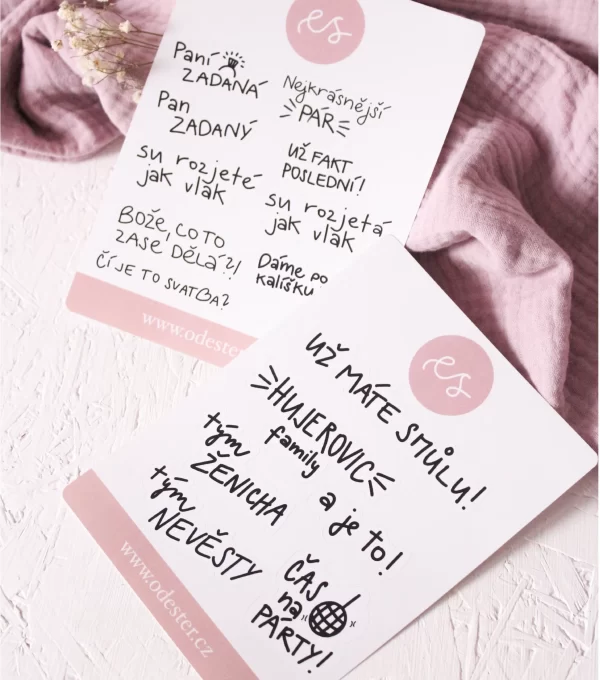 es
Paní
ZADANÁ
Pan
ZADANÝ
su rozjeté
jak vlak
BOŽE, CO TO
ZASE DĚLÁ?!
ČÍ JE TO SVATBA?
Nejkrásnější
PÁR
UŽ FAKT
POSLEDNÍ!
su rozjetá
jak vlak
Dáme po
kalíšku
www.odester
es
UŽ MÁTE SMŮLU!
HUJEROVIC
family
a je to!
tým
ŽENICHA
tým
NEVĚSTY
ČAS
na
PÁRTY!
www.odester.cz